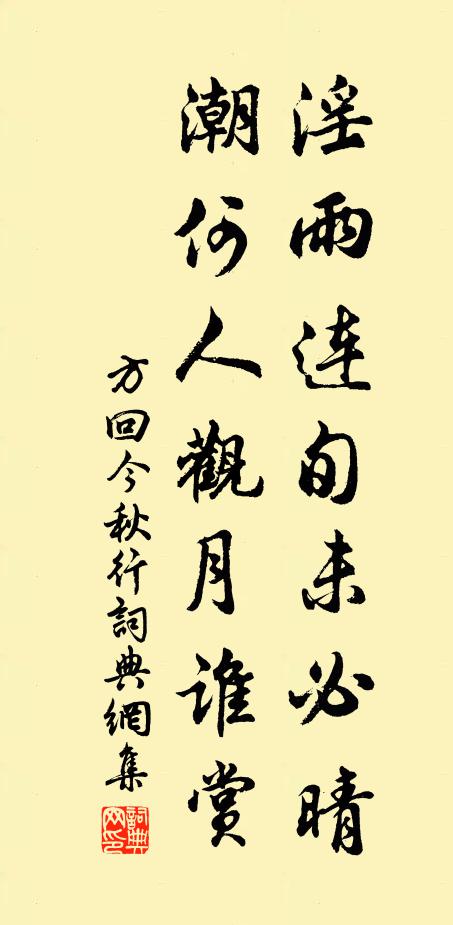 淫雨連旬未必晴
潮何人觀月誰賞
方回今秋行詞典網集
詞典網印